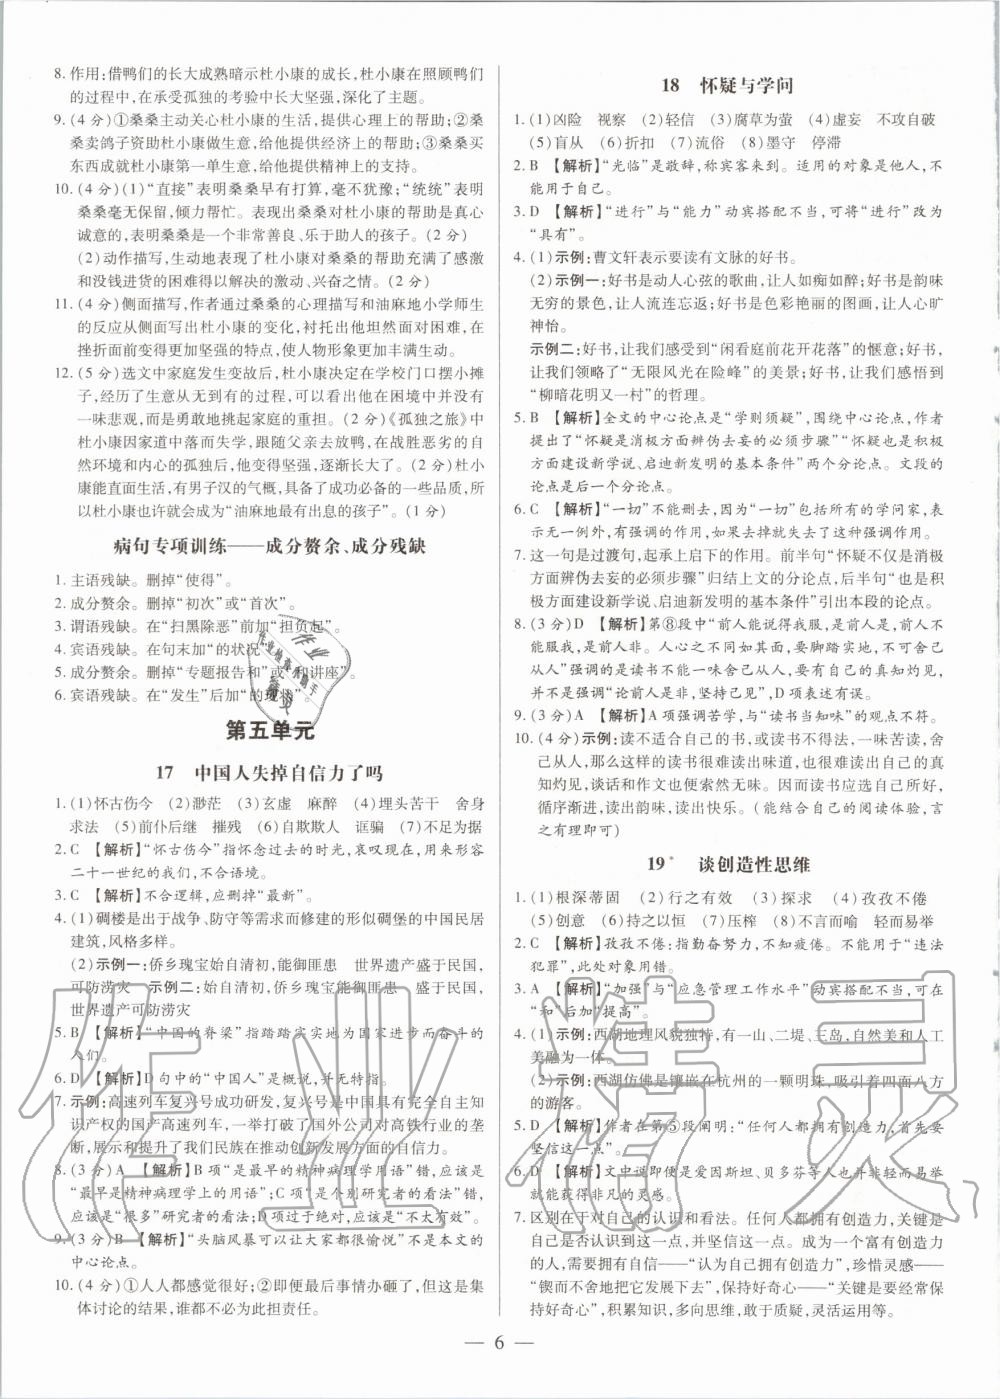 8. 作用:借鸭们的长大成熟暗示杜小康的成长,杜小康在照顾鸭们
的过程中,在承受孤独的考验中长大坚强,深化了主题。
9. (4 分)①桑桑主动关心杜小康的生活,提供心理上的帮助;②桑
桑卖鸽子资助杜小康做生意,给他提供资金上的帮助;③桑桑买
东西成就杜小康第一单生意,给他提供精神上的支持。
10. (4 分)(1)“直接”表明桑桑早有打算,毫不犹豫;“统统”表明
桑桑毫无保留,倾力帮忙。表现出桑桑对杜小康的帮助是真心
诚意的,表明桑桑是一个非常善良、乐于助人的孩子。(2 分)
(2)动作描写,生动地表现了杜小康对桑桑的帮助充满了感激
和没钱进货的困难得以解决的激动、兴奋之情。(2 分)
11. (4 分)侧面描写,作者通过桑桑的心理描写和油麻地小学师生
的反应从侧面写出杜小康的变化,衬托出他坦然面对困难,在
挫折面前变得更加坚强的特点,使人物形象更加丰满生动。
12. (5 分)选文中家庭发生变故后,杜小康决定在学校门口摆小摊
子,经历了生意从无到有的过程,可以看出他在困境中并没有
一味悲观,而是勇敢地挑起家庭的重担。(2 分)《孤独之旅》中
杜小康因家道中落而失学,跟随父亲去放鸭,在战胜恶劣的自
然环境和内心的孤独后,他变得坚强,逐渐长大了。(2 分)杜小
康能直面生活,有男子汉的气概,具备了成功必备的一些品质,所
以杜小康也许就会成为“油麻地最有出息的孩子”。(1 分)
病句专项训练——成分赘余、成分残缺
1. 主语残缺。删掉“使得”。
2. 成分赘余。删掉“初次”或“首次”。
3. 谓语残缺。在“扫黑除恶”前加“担负起”。
4. 宾语残缺。在句末加“的状况”
5. 成分赘余。删掉“专题报告和”或“和讲座”。
6. 宾语残缺。在“发生”后加“的现状”。
第五单元
17 中国人失掉自信力了吗
1. (1)怀古伤今 (2)渺茫 (3)玄虚 麻醉 (4)埋头苦干 舍身
求法 (5)前仆后继 摧残 (6)自欺欺人 诓骗 (7)不足为据
2. C 【解析】“怀古伤今”指怀念过去的时光,哀叹现在,用来形容
二十一世纪的我们,不合语境。
3. C 【解析】不合逻辑,应删掉“最新”。
4. (1)碉楼是出于战争、防守等需求而修建的形似碉堡的中国民居
建筑,风格多样。
(2)示例一:侨乡瑰宝始自清初,能御匪患 世界遗产盛于民国,
可防涝灾 示例二:始自清初,侨乡瑰宝能御匪患 盛于民国,
世界遗产可防涝灾
5. B 【解析】“中国的脊梁”指踏踏实实地为国家进步而奋斗的
人们。
6. D 【解析】D 句中的“中国人”是概说,并无特指。
7. 示例:高速列车复兴号成功研发,复兴号是中国具有完全自主知
识产权的国产高速列车,一举打破了国外公司对高铁行业的垄
断,展示和提升了我们民族在推动创新发展方面的自信力。
8. (3 分)A 【解析】B 项“是最早的精神病理学用语”错,应该是
“最早是精神病理学上的用语”;C 项“是个别研究者的看法”错,
应该是“很多”研究者的看法;D 项过于绝对,应该是“不太有效”。
9. (3 分)B 【解析】“头脑风暴可以让大家都很愉悦”不是本文的
中心论点。
10. (4 分)①人人都感觉很好;②即便最后事情办砸了,但这是集
体讨论的结果,谁都不必为此担责任。
18 怀疑与学问
1. (1)凶险 视察 (2)轻信 (3)腐草为萤 (4)虚妄 不攻自破
(5)盲从 (6)折扣 (7)流俗 (8)墨守 停滞
2. B 【解析】“光临”是敬辞,称宾客来到。适用的对象是他人,不
能用于自己。
3. D 【解析】“进行”与“能力”动宾搭配不当,可将“进行”改为
“具有”。
4. (1)示例:曹文轩表示要读有文脉的好书。
(2)示例一:好书是动人心弦的歌曲,让人如痴如醉;好书是韵味
无穷的景色,让人流连忘返;好书是色彩艳丽的图画,让人心旷
神怡。
示例二:好书,让我们感受到“闲看庭前花开花落”的惬意;好书,
让我们领略了“无限风光在险峰”的美景;好书,让我们感悟到
“柳暗花明又一村”的哲理。
5. B 【解析】全文的中心论点是“学则须疑”,围绕中心论点,作者
提出了“怀疑是消极方面辨伪去妄的必须步骤”“怀疑也是积极
方面建设新学说、启迪新发明的基本条件”两个分论点。文段的
论点是后一个分论点。
6. C 【解析】“一切”不能删去,因为“一切”包括所有的学问家,表
示无一例外,有强调的作用,如果去掉就失去了强调的作用。
7. 这一句是过渡句,起承上启下的作用。前半句“怀疑不仅是消极
方面辨伪去妄的必须步骤”归结上文的分论点,后半句“也是积
极方面建设新学说、启迪新发明的基本条件”引出本段的论点。
8. (3 分)D 【解析】第⑧段中“前人能说得我服,是前人是,前人不
能服我,是前人非。人心之不同如其面,要脚踏实地,不可舍己
从人”强调的是读书不能一味切记,要有自己的真知灼见,
并不是强调“论前人是非,坚持己见”,D 项表述有误。
9. (3 分)A 【解析】A 项强调苦学,与“读书当知味”的观点不符。
10. (4 分)示例:读不适合自己的书,或读书不得法,一味苦读,舍
己从人,那么这样的读书很难读出味道,也很难读出自己的真
知灼见,谈话和作文也便索然无味。因而读书应选自己喜好的,
循序渐进,读出韵味,读出快乐。(能结合自己的阅读体验,言
之有理即可)
19* 谈创造性思维
1. (1)根深蒂固 (2)行之有效 (3)探求 (4)孜孜不倦
(5)创意 (6)持之以恒 (7)压榨 (8)不言而喻 轻而易举
2. C 【解析】孜孜不倦:指勤奋努力,不知疲倦。不能用于“违法
犯罪”,此处对象用错。
3. A 【解析】“加强”与“应急管理工作水平”动宾搭配不当,可在
“和”后加“提高”。
4. (1)示例:西湖地理风貌独特,有一山、二堤、三岛,自然美和人工
美融为一体。
(2)示例:西湖仿佛是镶嵌在杭州的一颗明珠,吸引着四面八方
的游客。
5. D 【解析】作者在第⑤段阐明:“任何人都拥有创造力,首先要
坚信这一点”。
6. D 【解析】文中诚即便是爱因斯坦、贝多芬等人也并非轻而易举
就能获得非凡的灵感。
7. 区别在于对自己的认识和看法。任何人都拥有创造力,关键是
自己是否认识到这一点,并坚信这一点。成为一个富有创造力
的人,需要拥有自信——“认为自己拥有创造力”,珍惜灵感——
“锲而不舍地把它发展下去”,保持好奇心——“关键是要经常保
持好奇心”,积累知识,多向思维,敢于质疑,灵活运用等。
— 6 —
作业精灵